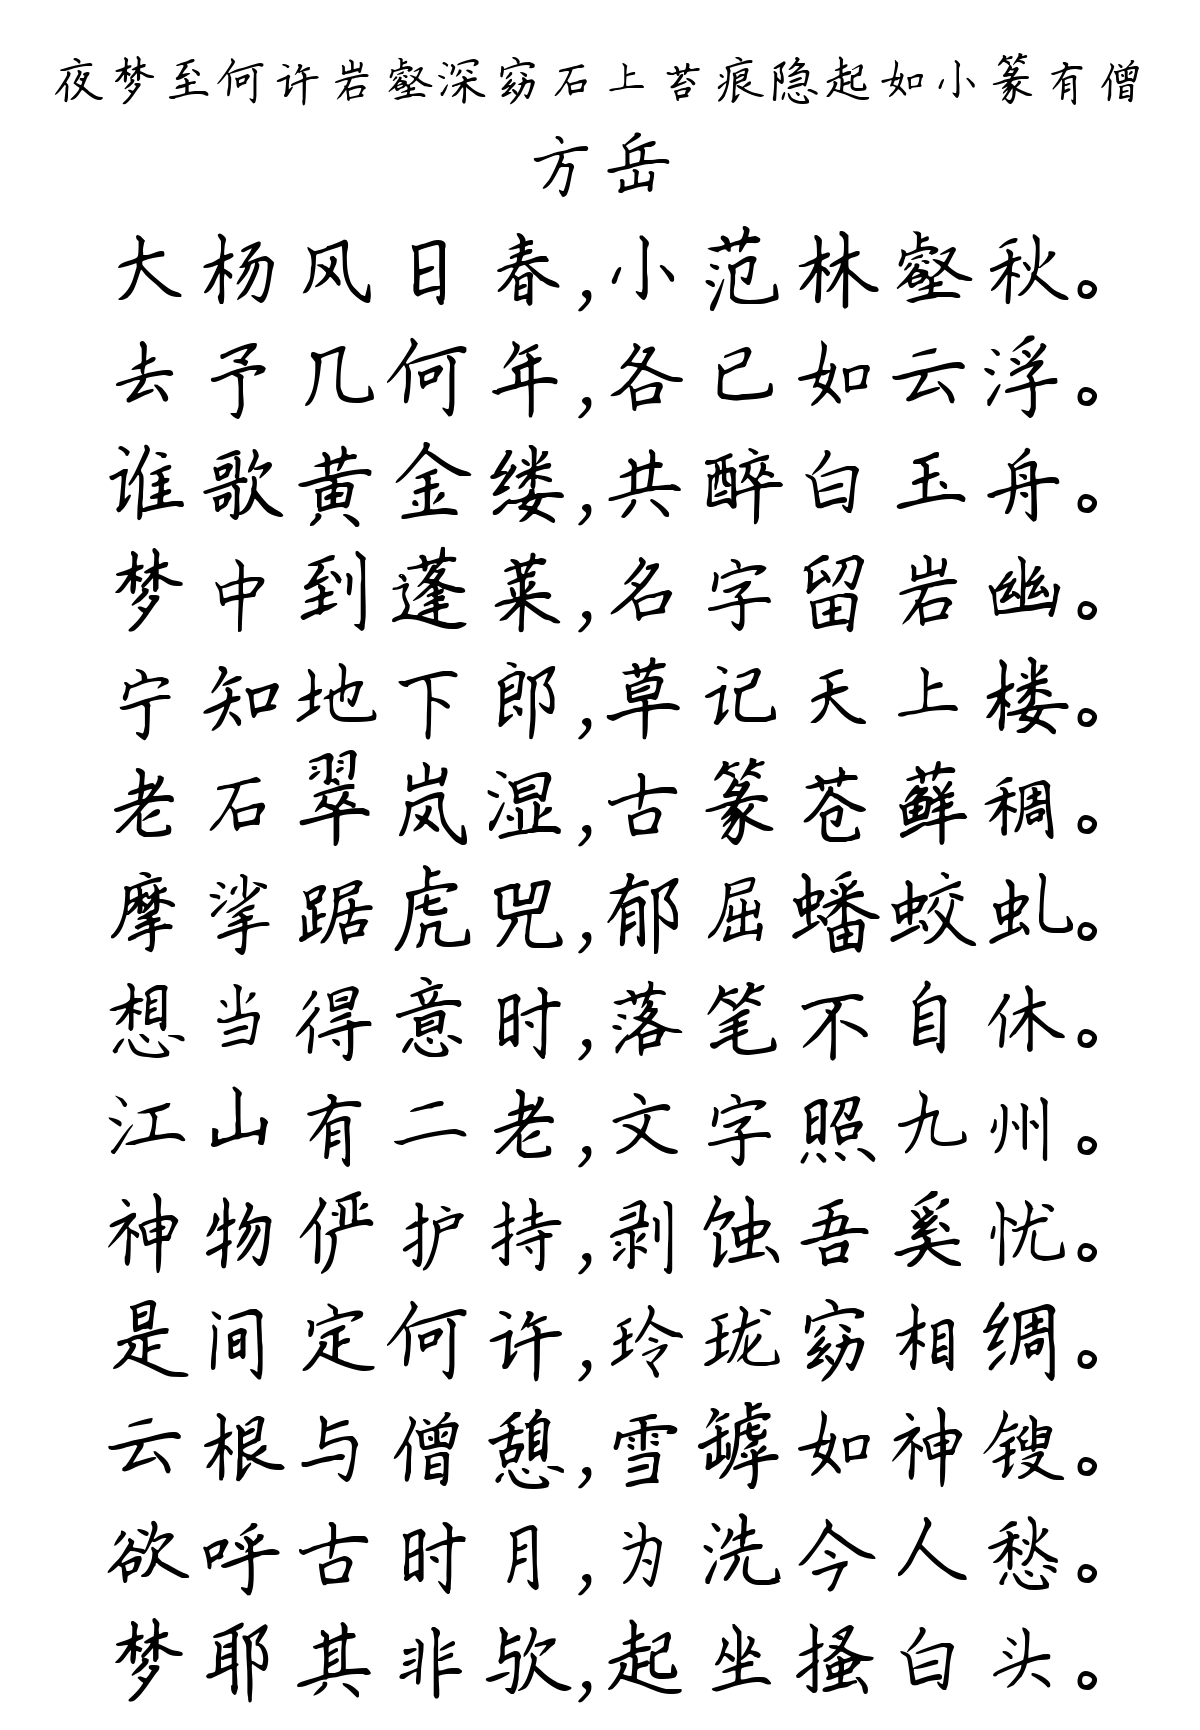 夜梦至何许岩壑深窈石上苔痕隐起如小篆有僧
方岳
大杨风日春,小范林壑秋。
去予几何年,各已如云浮。
谁歌黄金缕,共醉白玉舟。
梦中到蓬莱,名字留岩幽。
宁知地下郎,草记天上楼。
老石翠岚湿,古篆苍藓稠。
摩挲踞虎兕,郁屈蟠蛟虬。
想当得意时,落笔不自休。
江山有二老,文字照九州。
神物俨护持,剥蚀吾奚忧。
是间定何许,玲珑窈相绸。
云根与僧憩,雪罅如神锼。
欲呼古时月,为洗今人愁。
梦耶其非欤,起坐搔白头。